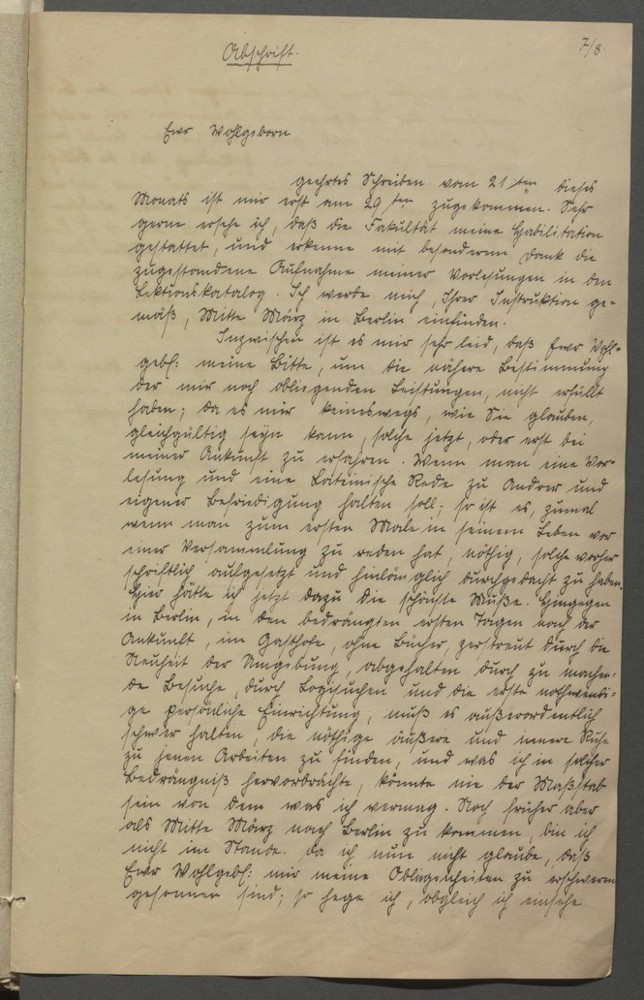 7/8.
Abschrift.
Ewr Wohlgeborn
geehrtes Schreiben vom 21 ten dieses
Monats ist mir erst am 29 ten zugekommen. Sehr
gerne ersehe ich, daß die Fakultät meine Habilitation
gestattet, und erkenne mit besonderem Dank die
zugestandene Aufnahme meiner Vorlesungen in den
Lektionskatalog. Ich werde mich, Ihrer Instruktion ge-
mäß, Mitte März in Berlin einfinden.
Inzwischen ist es mir sehr leid, daß Ewr Wohl-
gebh: meine Bitte, um die nähere Bestimmung
der mir noch obliegenden Leistungen, nicht erfüllt
haben; da es mir keineswegs, wie Sie glauben,
gleichgültig seyn kann, solche jetzt, oder erst bei
meiner Ankunft zu erfahren. Wenn man eine Vor-
lesung und eine Lateinische Rede zu Andrer und
eigener Befriedigung halten soll; so ist es, zumal
wenn man zum ersten Male in seinem Leben vor
einer Versammlung zu reden hat, nöthig, solche vorher
schriftlich aufgesetzt und hinlänglich durchgedacht zu haben.
Hier hätte ich jetzt dazu die schönste Muße. Hingegen
in Berlin, in den bedrängten ersten Tagen nach der
Ankunft, im Gasthofe, ohne Bücher, zerstreut durch die
Neuheit der Umgebung, abgehalten durch zu machen-
de Besuche, durch Logissuchen und die erste nothwendi-
ge persönliche Einrichtung, muß es außerordentlich
schwer halten, die nöthige äußere und innere Ruhe
zu jenen Arbeiten zu finden, und was ich in solcher
Bedrängniß hervorbrächte, könnte nie der Maßstab
sein von dem was ich vermag. Noch früher aber
als Mitte März nach Berlin zu kommen, bin ich
nicht im Stande. Da ich nun nicht glaube, daß
Ewr Wohlgebh: mir meine Oblagenheiten zu erschweren
gesonnen sind; so hege ich, obgleich ich einsehe